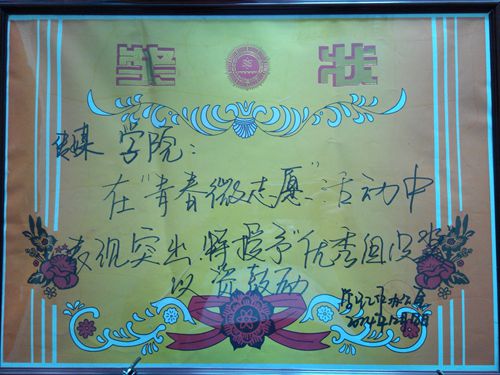 奖状
传媒学院：
在“青春微志愿”活动中
表现突出，特授予“优秀组织奖”
以资鼓励
办公室